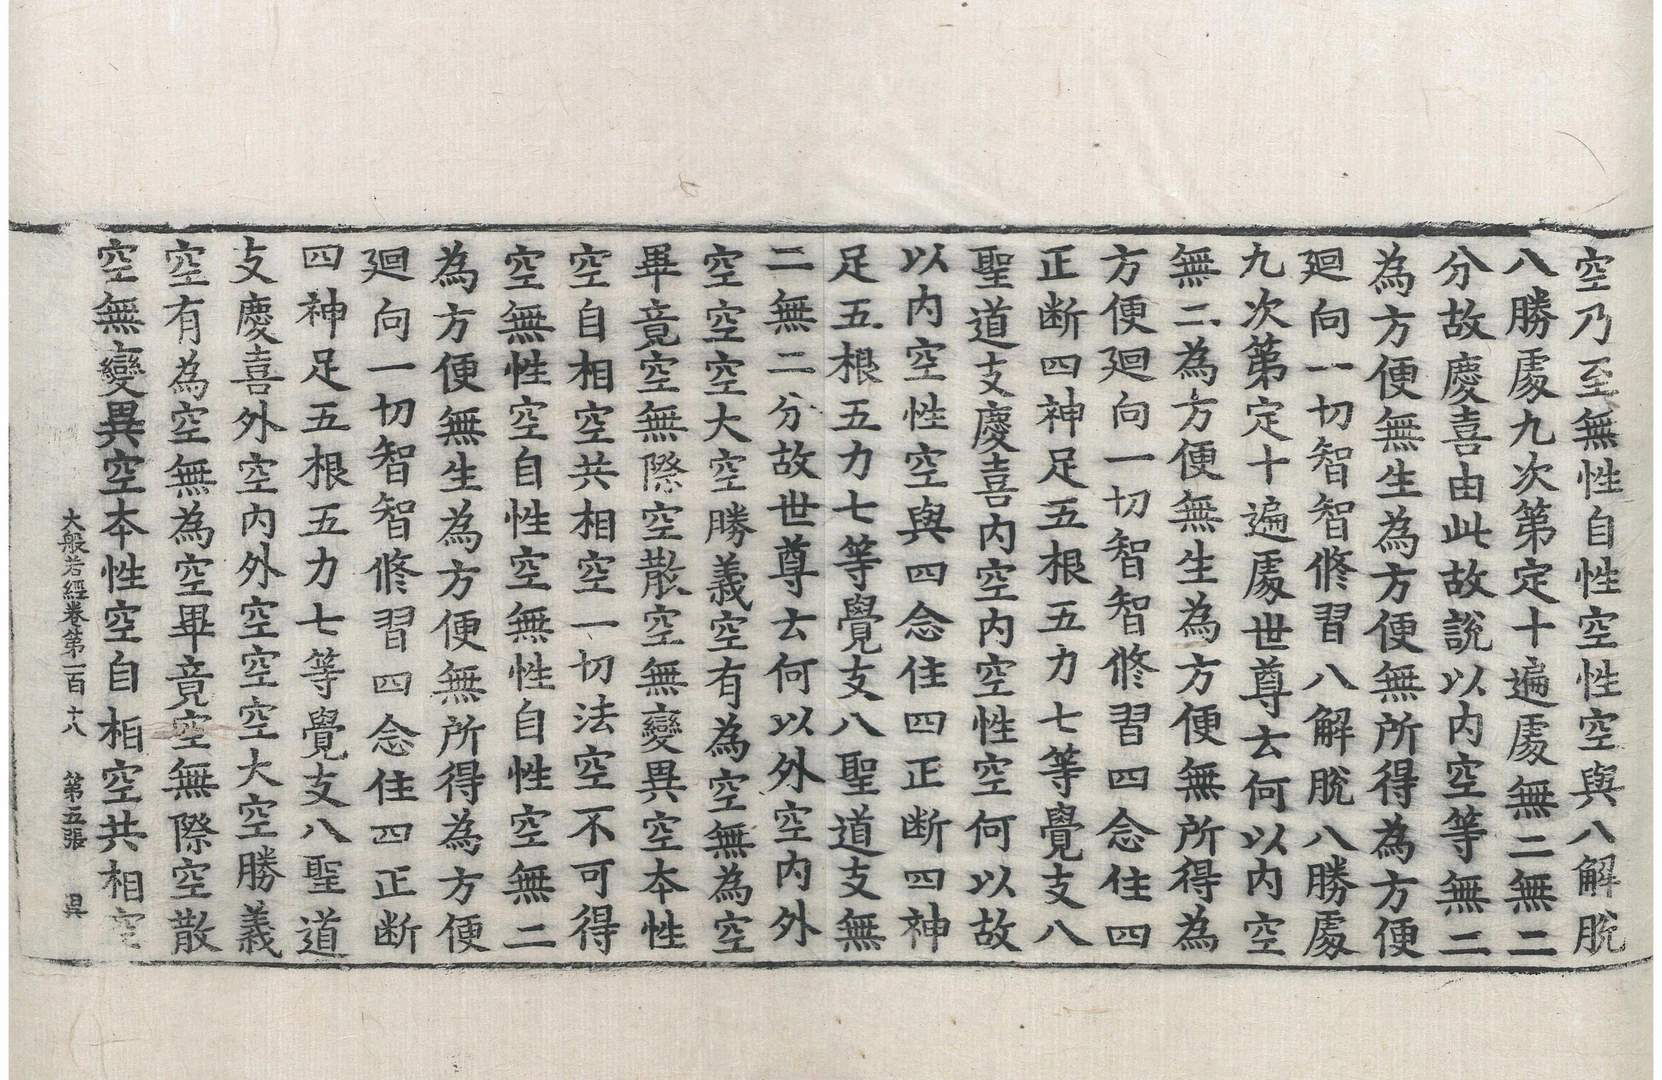 空乃至無性自性空性空與八解脫
八勝處九次第定十遍處無二無二
分故慶喜由此故說以內空等無二
為方便無生為方便無所得為方便
廻向一切智智修習八解脫八勝處
九次第定十遍處世尊云何以內空
無二為方便無生為方便無所得為
方便廻向一切智智修習四念住四
正断四神足五根五力七等覺支八
聖道支慶喜內空內空性空何以故
以內空性空與四念住四正断四神
足五根五力七等覺支八聖道支無
二無二分故世尊云何以外空內外
空空空大空勝義空有為空無為空
畢竟空無際空散空無變異空本性
空自相空共相空一切法空不可得
空無性空自性空無性自性空無二
為方便無生為方便無所得為方便
廻向一切智智修習四念住四正断
四神足五根五力七等覺支八聖道
支慶喜外空內外空空空大空勝義
空有為空無為空畢竟空無際空散
空無變異空本性空自相空共相空
大般若經卷第一百十八 第五張 昃